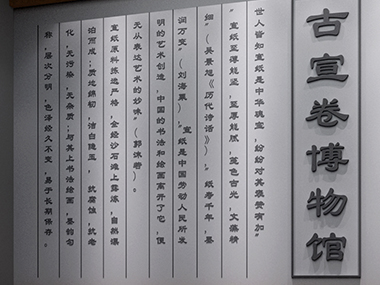 古宣卷博物馆
世人皆知宣纸是中华瑰宝,纷纷对其褒赞有加
"宣纸至薄能坚,至厚能腻,笺色古光,文藻精
细"(吴景旭《历代诗话》)。纸寿千年,墨
润万变"(刘海粟)。"宣纸是中国劳动人民所发
明的艺术创造,中国的书法和绘画离开了它,便
无从表达艺术的妙味"(郭沫若)。
宣纸原料拣选严格,全经沙石滩上露炼,自然漂
泊而成;质地绵韧,洁白随玉,抗腐蚀,抗老
化,无污染,无杂质;与其上书法绘画,墨韵匀
称,层次分明,色泽经久不变,易于长期保存。